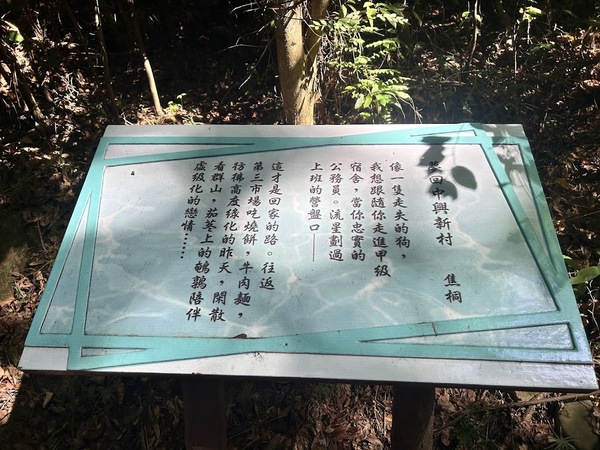 夢回中興新村
焦桐
像一隻走失的狗，
我想跟隨你走進甲級
宿舍，當你忠實的
公務員。流星劃過
上班的營盤口——
這才是回家的路。往返
第三市場吃燒餅，牛肉麵，
彷彿高度綠化的昨天，閒散
看群山，茄苳上的鵪鶉陪伴
虛級化的戀情……